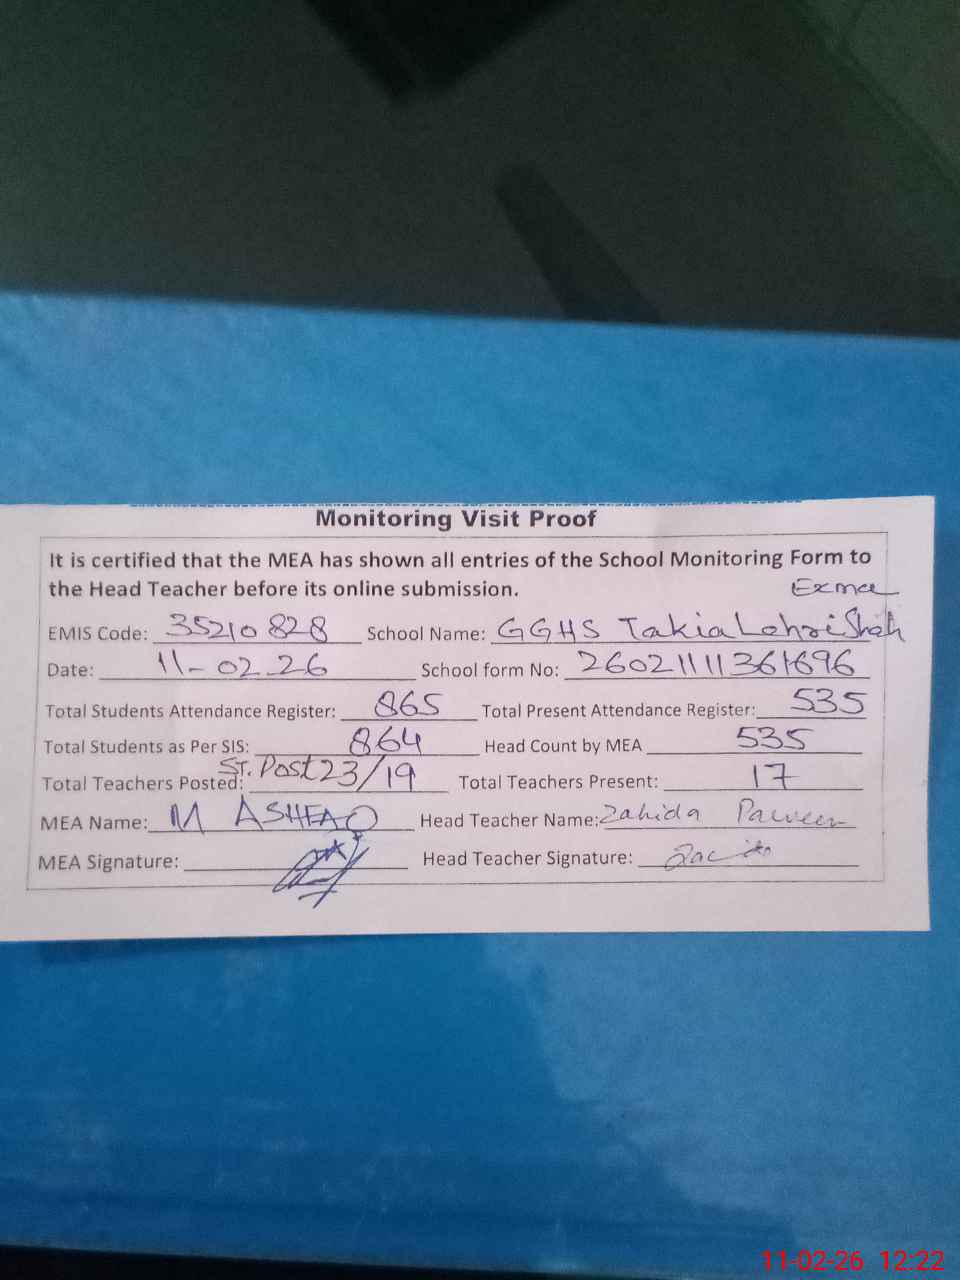 Monitoring Visit Proof
It is certified that the MEA has shown all entries of the School Monitoring Form to
the Head Teacher before its online submission.
EMIS Code: 35210828 School Name: GGHS Takia Lehri Shah
Date: 11-02-26 School form No: 26021111361696
Total Students Attendance Register: 865 Total Present Attendance Register: 535
Total Students as Per SIS: 864 Head Count by MEA 535
Total Teachers Posted: ST. Post 23/19 Total Teachers Present: 17
MEA Name: M ASHFAQ Head Teacher Name: Zahida Parveen
MEA Signature: Head Teacher Signature:
11-02-26 12:22